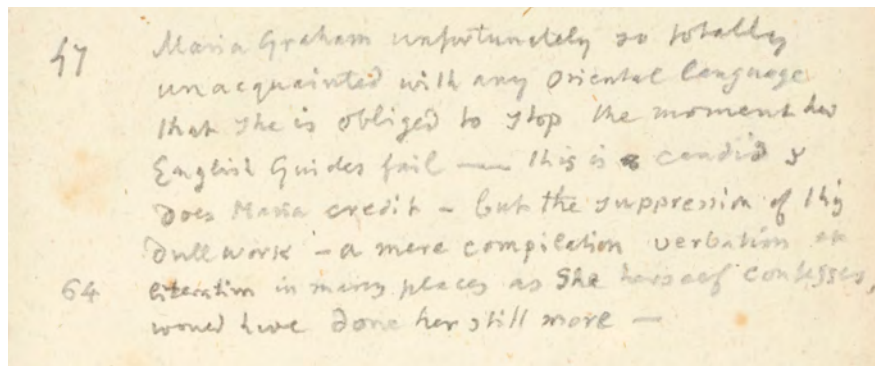 47 Maria Graham unfortunately so totally
unacquainted with any Oriental language
that she is obliged to stop the moment her
English Guides fail — this is candid &
does Maria credit – but the suppression of this
dull work – a mere compilation verbatim et
64 literatim in many places as she herself confesses,
would have done her still more —